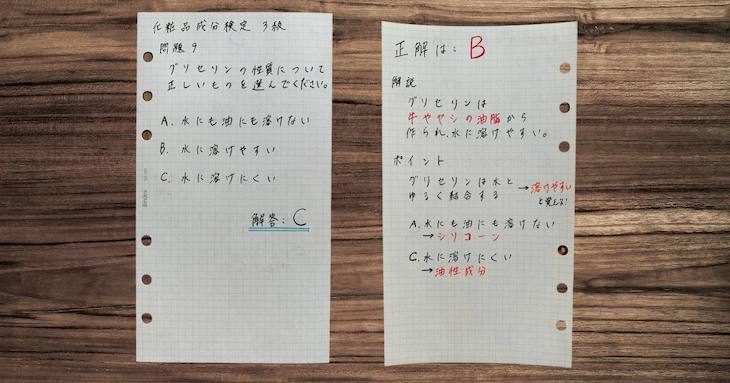 化粧品成分検定 3級
問題9
グリセリンの性質について
正しいものを選んでください。
A. 水にも油にも溶けない
B. 水に溶けやすい
C. 水に溶けにくい
解答: C
正解は: B
解説
グリセリンは
牛やヤシの油脂から
作られ、水に溶けやすい。
ポイント
グリセリンは水と
ゆるく結合する
→溶けやすい
と覚える!
A. 水にも油にも溶けない
→シリコーン
C. 水に溶けにくい
→油性成分